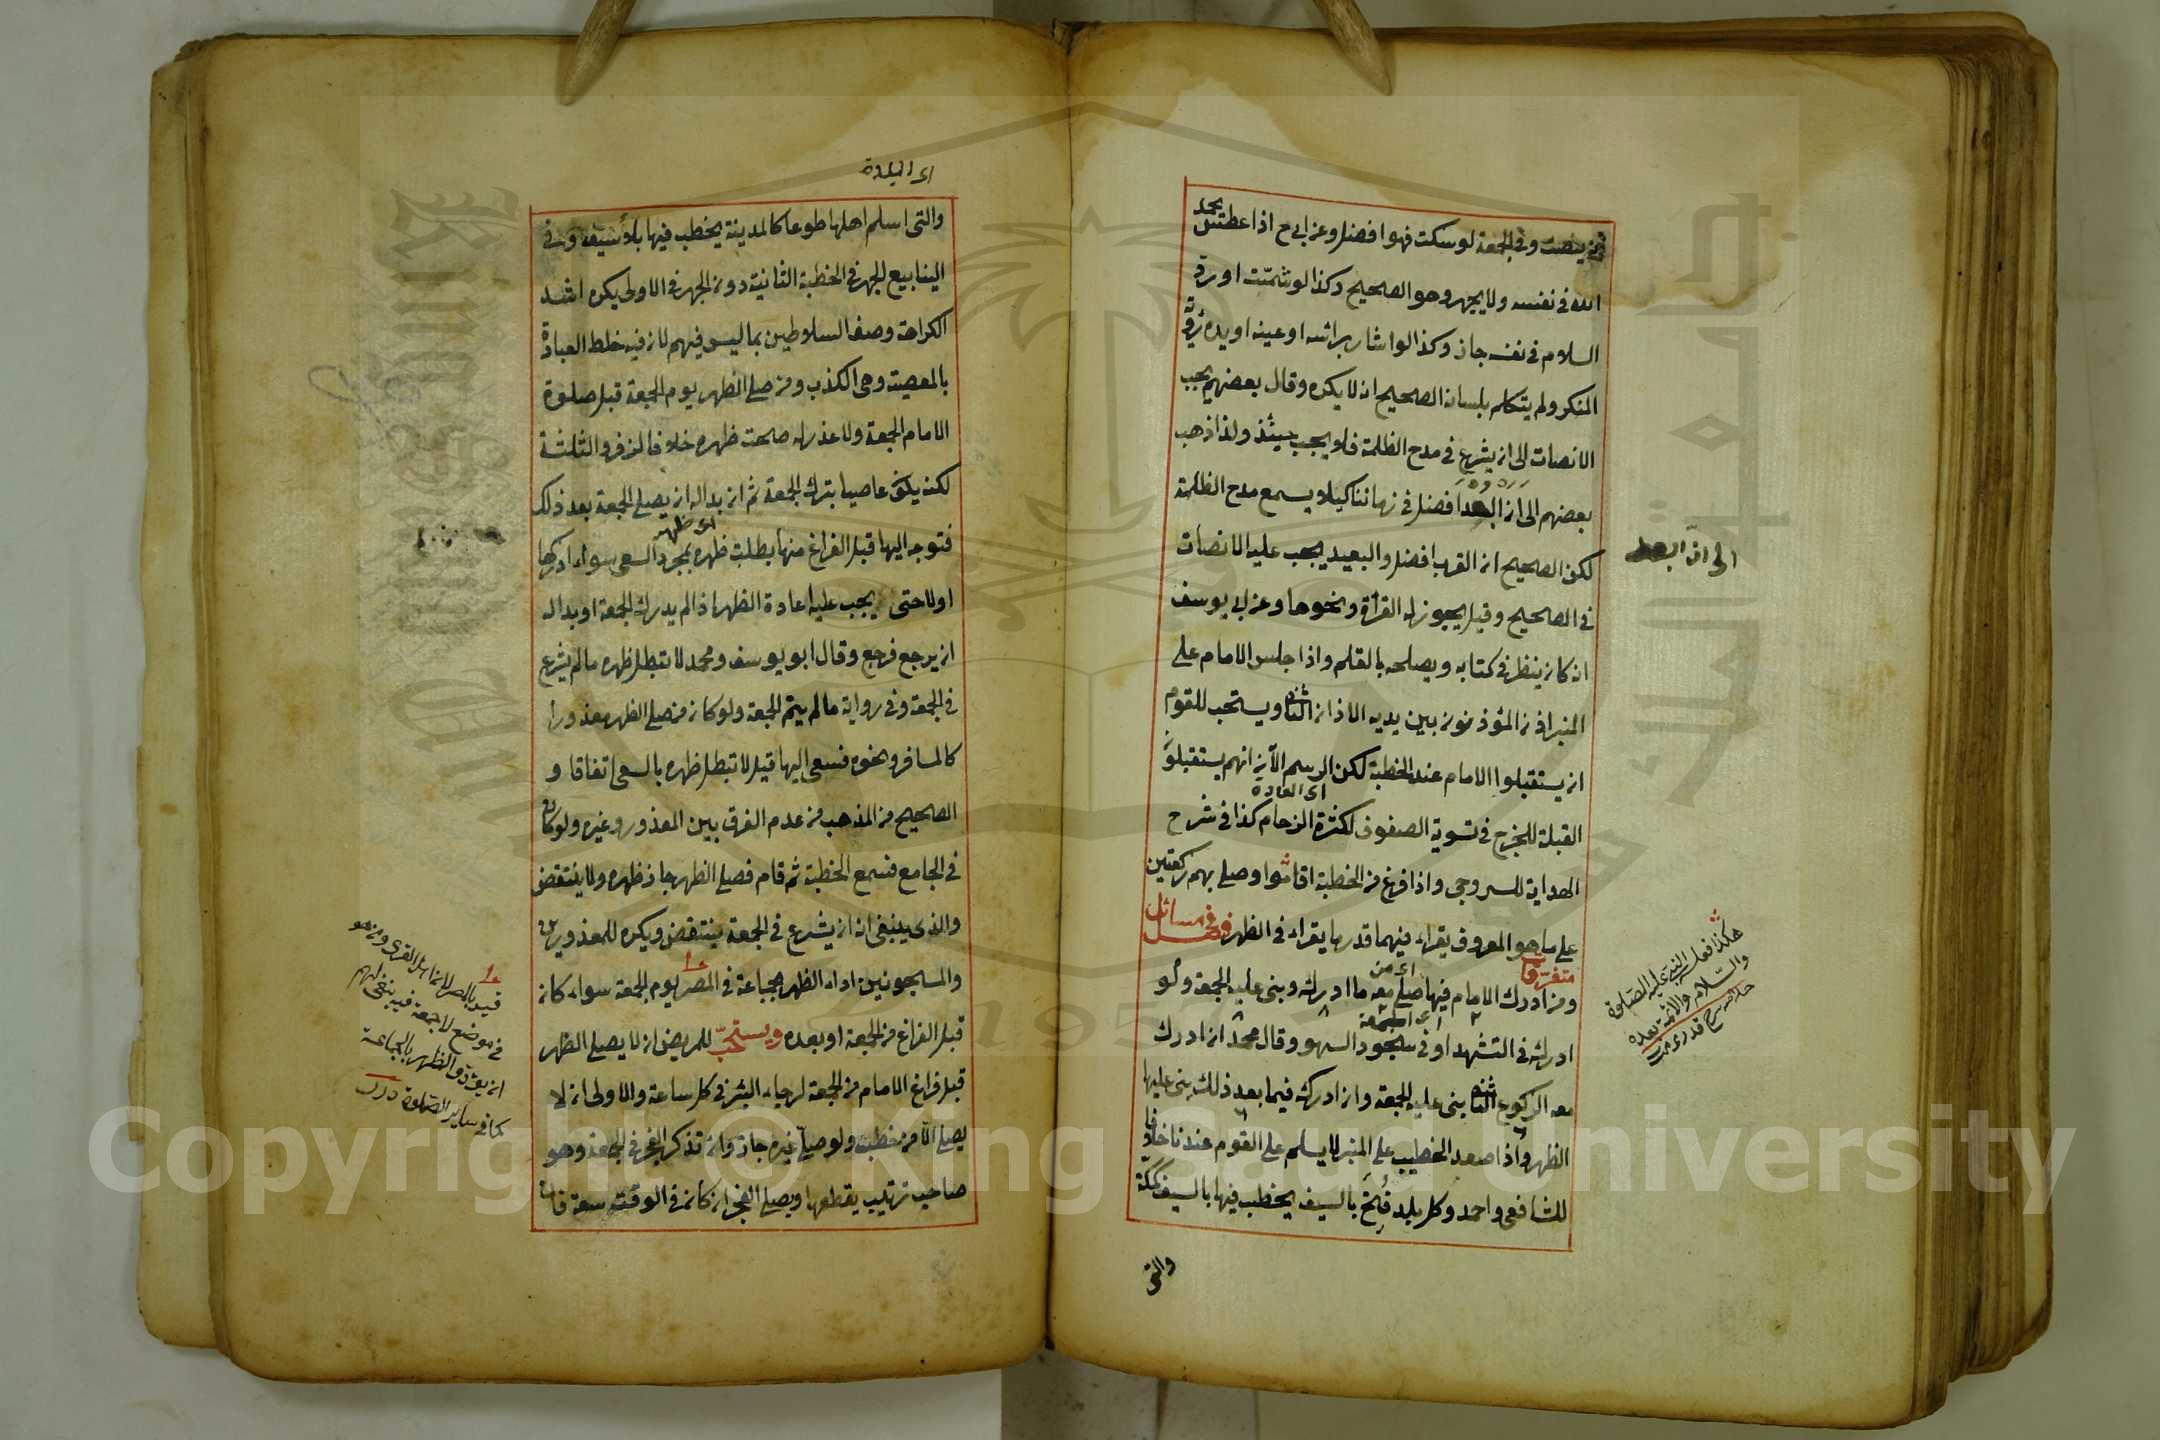 ينصت وفي الجمعة لوسكت فهوا فضل وعن ابي ح اذا عطس يحمد
الله في نفسه ولا يجهر وهو الصحيح وكذا لو شمّت او رد
السلام في نفسه جاز وكذا لو اشار براسه او عينه او يده لرؤية
المنكر ولم يتكلم بلسانه الصحيح انه لا يكره وقال بعضهم يجب
الانصات الى ان يشرع في مدح الظلمة فلا يجب حينئذ ولذا ذهب
بعضهم الى ان البعد افضل في زماننا كيلا يسمع مدح الظلمة
الى انّ البعد
لكن الصحيح ان القرب افضل والبعيد يجب عليه الانصات
في الصحيح وقيل يجوز له القراة ونحوها وعن ابي يوسف
انه كان ينظر في كتابه ويصلحه بالقلم واذا جلس الامام على
المنبر اذن المؤذنون بين يديه الاذان الثاني ويستحب للقوم
ان يستقبلوا الامام عند الخطبة لكن الرسم الآن انهم يستقبلون
اى العادة
القبلة للحرج في تسوية الصفوف لكثرة الزحام كذا في شرح
الهداية للسروجي واذا فرغ من الخطبة اقاموا وصلى بهم ركعتين
على ما هو المعروف يقراء فيهما قدر ما يقراء في الظهر فصل في مسائل
متفرقة
هكذا فعله النبي عليه الصلوة
والسّلام والائمة بعده
اى من
ومن ادرك الامام فيها صلى معه ما ادركه وبنى عليه الجمعة ولو
اى الجمعة
ادركه في التشهد او في سجود السهو وقال محمد ان ادرك
معه الركوع الثاني بنى عليه الجمعة وان ادركه فيما بعد ذلك بنى عليها
الظهر واذا صعد الخطيب على المنبر لا يسلم على القوم عندنا خلافا
للشافعي واحمد وكل بلد فُتِحَ بالسيف يخطب فيها بالسيف كمكة
والتي
اى البلدة
والتي اسلم اهلها طوعا كالمدينة يخطب فيها بلا سيف وفي
الينابيع الجهر في الخطبة الثانية دون الجهر في الاولى يكره اشد
الكراهة وصف السلاطين بما ليس فيهم لان فيه خلط العبادة
بالمعصية وهي الكذب ومن صلى الظهر يوم الجمعة قبل صلوة
الامام الجمعة ولا عذر له صحت ظهره خلافا لزفر والثلثة
لكن يكون عاصيا بترك الجمعة ثم ان بداله ان يصلي الجمعة بعد ذلك
اى ظهر
فتوجه اليها قبل الفراغ منها بطلت ظهره بمجرد السعي سواء ادركها
اولا حتى يجب عليه اعادة الظهر اذا لم يدرك الجمعة او بداله
ان يرجع فرجع وقال ابو يوسف ومحمد لا تبطل ظهره ما لم يشرع
في الجمعة وفي رواية ما لم يتم الجمعة ولو كان من صلى الظهر معذورا
كالمسافر ونحوه فسعى اليها قيل لا تبطل ظهره بالسعي اتفاقا و
الصحيح من المذهب من عدم الفرق بين المعذور وغيره ولو كان
في الجامع فسمع الخطبة ثم قام فصلى الظهر جاز ظهره ولا ينتقض
والذي ينبغي انه ان يشرع في الجمعة ينتقض ويكره للمعذورين
والمسجونين اداء الظهر بجماعة في المصر يوم الجمعة سواء كان
قبل الفراغ من الجمعة او بعده ويستحبّ للمريض ان لا يصلي الظهر
قبل فراغ الامام من الجمعة لرجاء البرء في كل ساعة والاولى ان لا
يصلي الّا من خطب ولو صلى غيره جاز وان تذكر الفجر في الجمعة وهو
صاحب ترتيب يقطعها ويصلي الفجر ان كان في الوقت سعة فان
قيد بالمصر لانا اهل القرى ومن هو
في موضع لا جمعة فيه ينبغى لهم
ان يؤدوا الظهر بالجماعة
كما في ساير الصّلوة درر
Copyright © King Saud University
1957